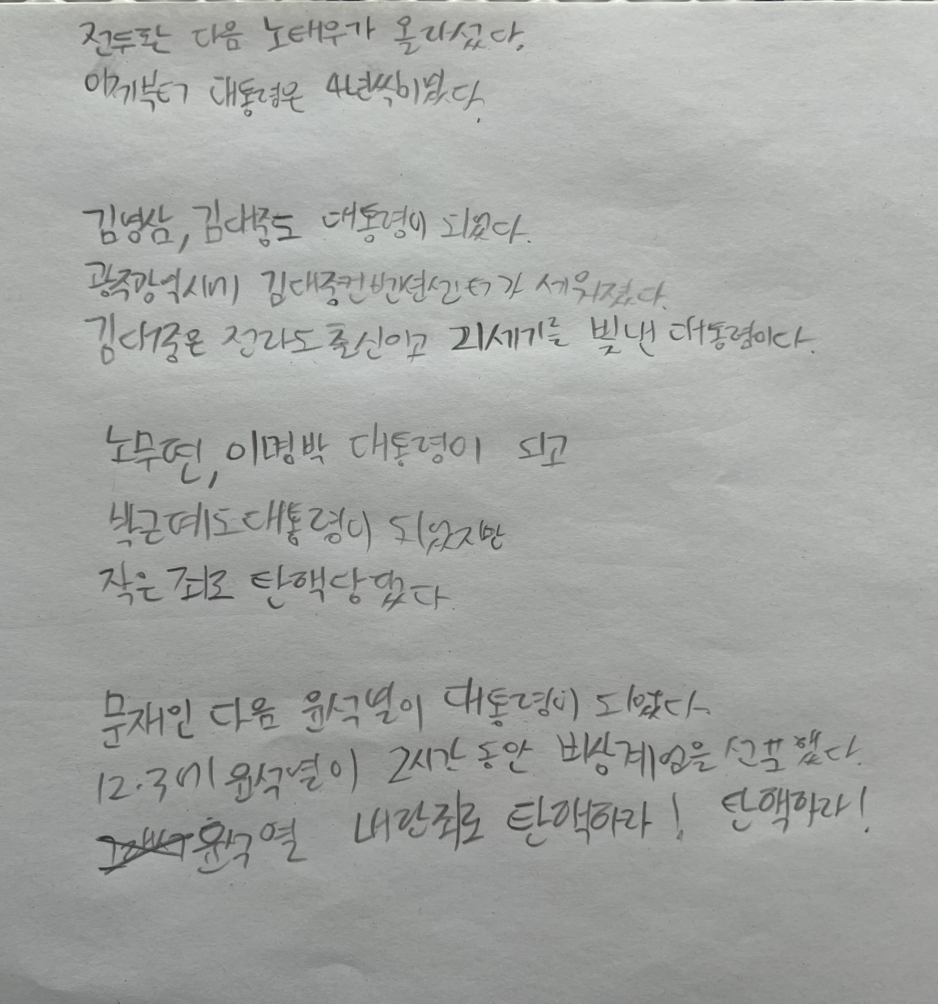 전두환 다음 노태우가 올라섰다.
이제부터 대통령은 4년씩이었다.
김영삼, 김대중도 대통령이 되었다.
광주광역시에 김대중컨벤션센터가 세워졌다.
김대중은 전라도 출신이고 21세기를 빛낸 대통령이다.
노무현, 이명박 대통령이 되고
박근혜도 대통령이 되었지만
작은 죄로 탄핵당했다
문재인 다음 윤석열이 대통령이 되었다.
12.3에 윤석열이 2시간 동안 비상계엄을 선포했다.
윤석열 내란죄로 탄핵하라! 탄핵하라!